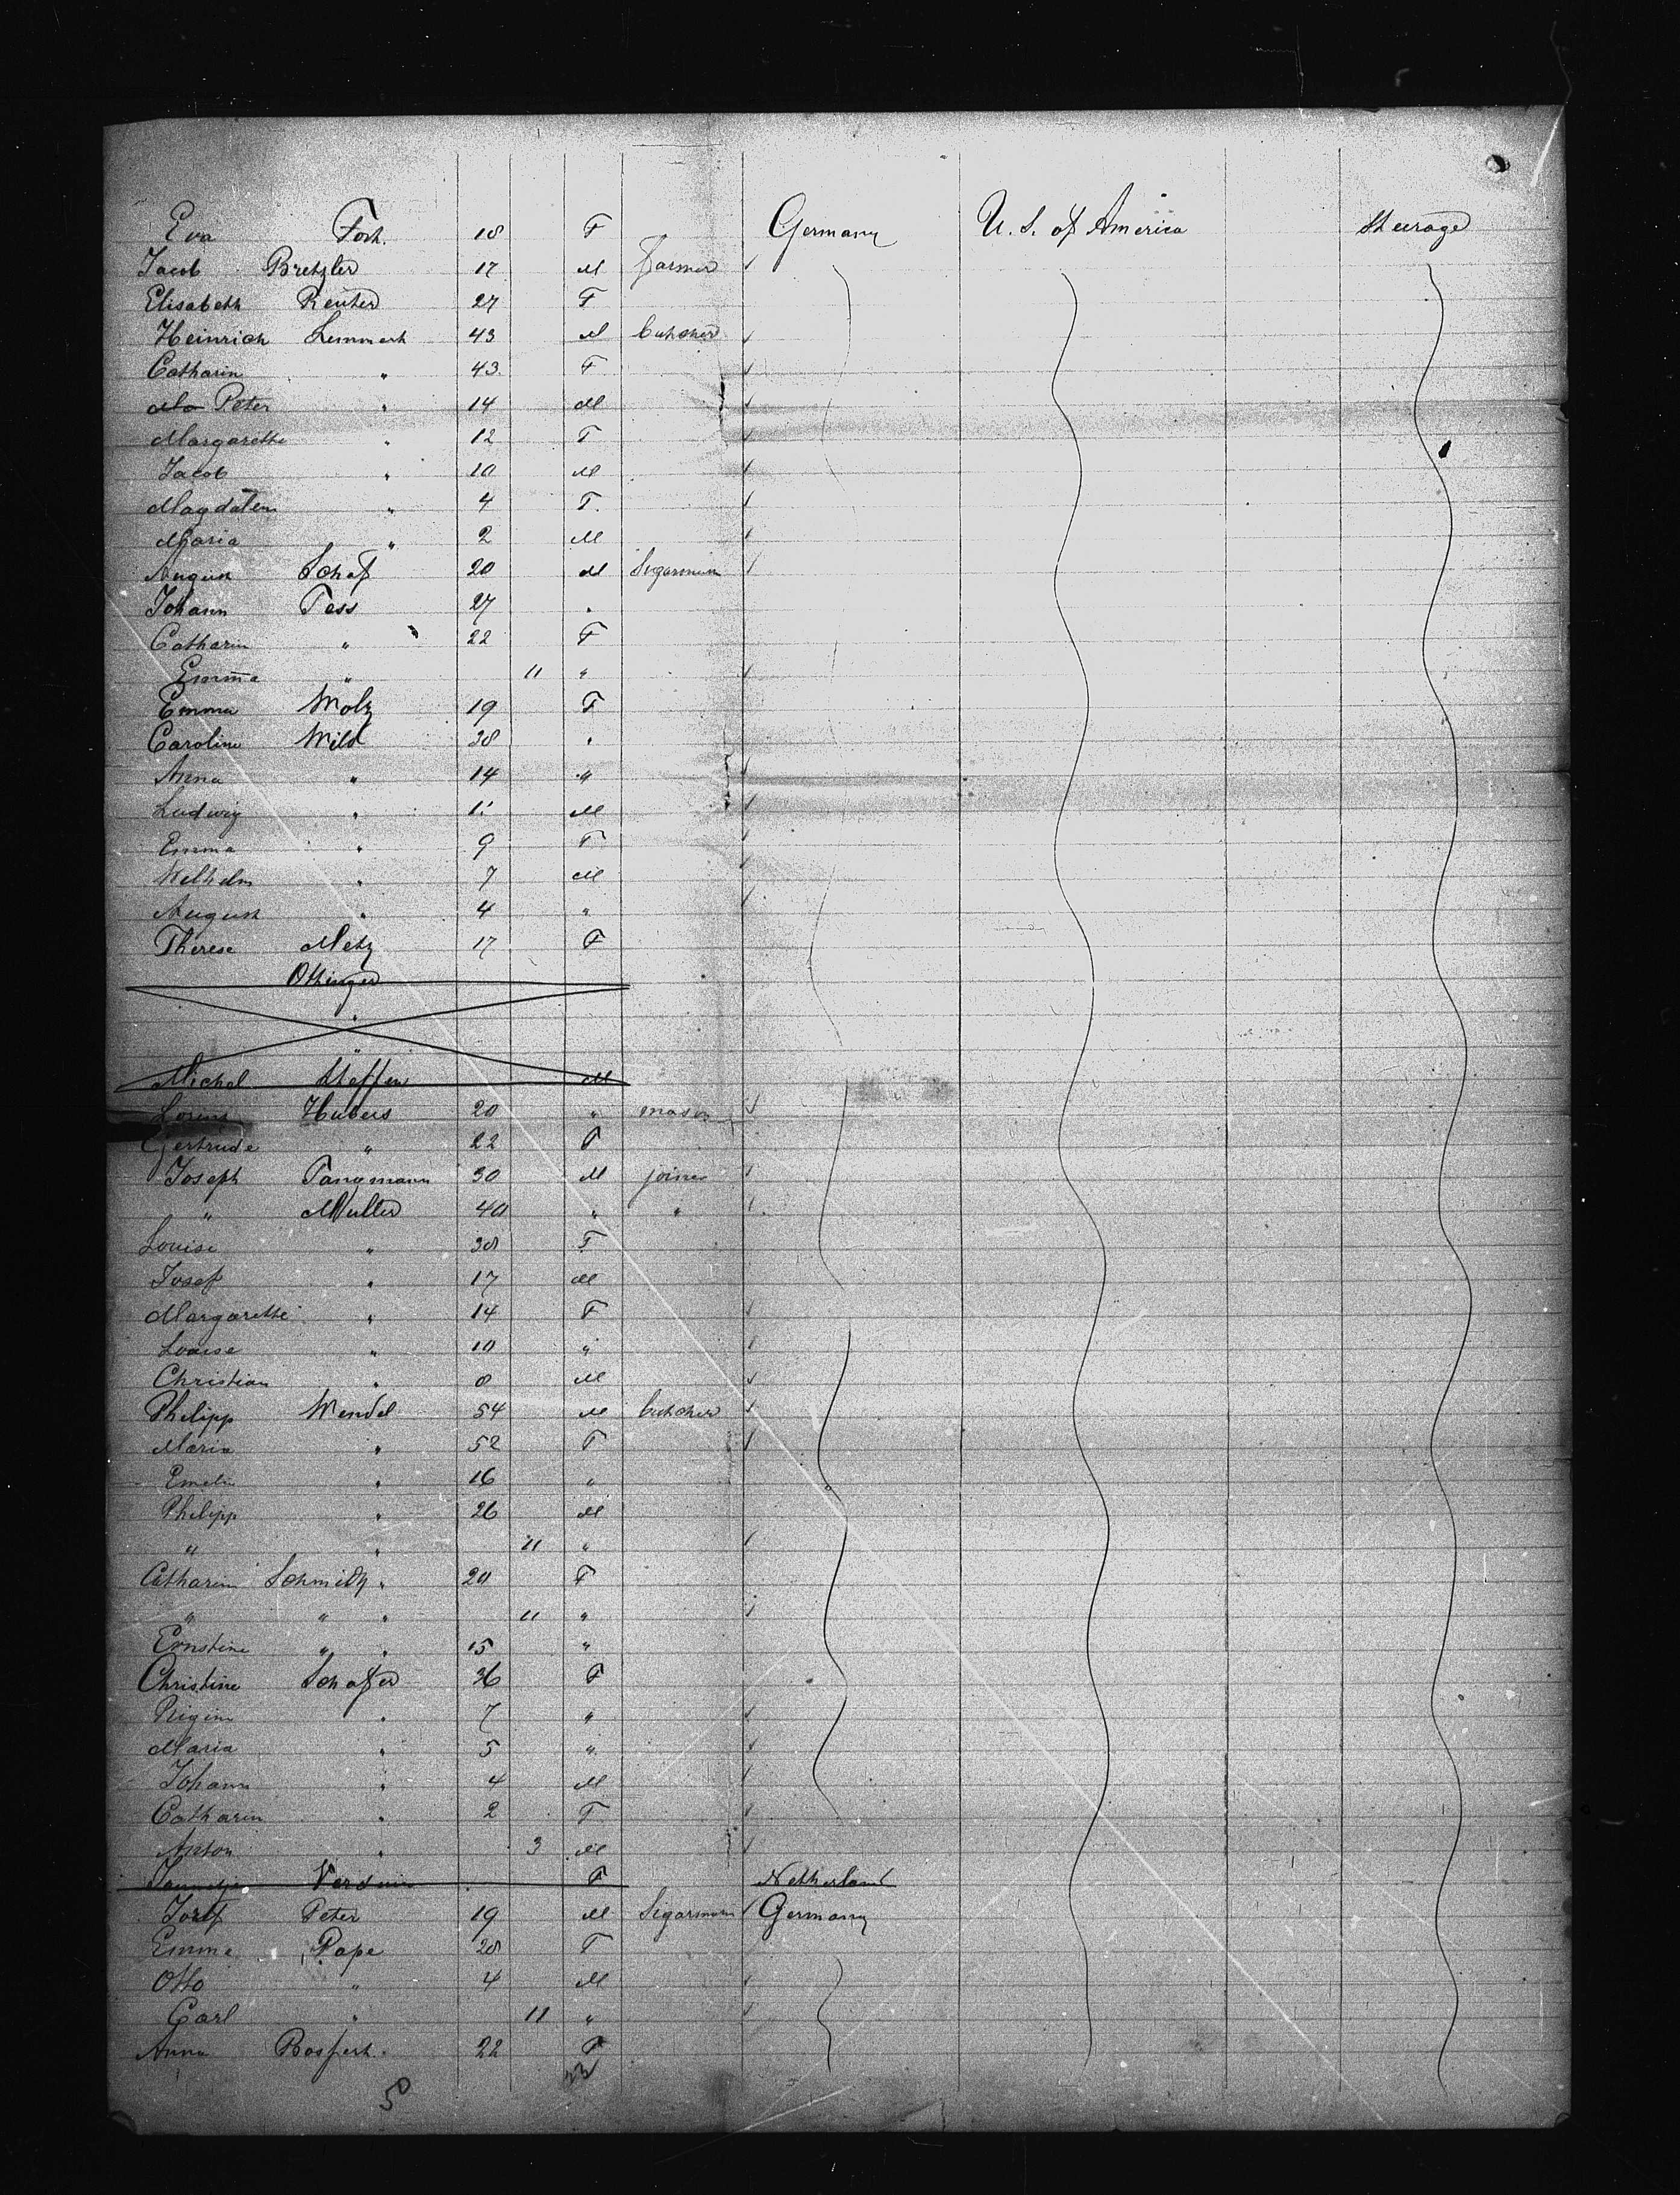 Eva Foth. 18 F Germany U. S. of America Steerage
Jacob Bretzler 17 M farmer
Elisabeth Reuter 27 F
Heinrich Lemmert 43 M butcher
Catharin " 43 F
Ma Peter " 14 M
Margarethe " 12 F
Jacob " 10 M
Magdalen " 4 F.
Maria " 2 M
August Schaf 20 M Segarman
Johann Fess 27 "
Catharin " 22 F
Emma " 11 "
Emma Molz 19 F
Caroline Wild 38 "
Anna " 14 "
Ludwig " 11 M
Emma " 9 F
Wilhelm " 7 M
August " 4 "
Therese Metz 17 F
Ottinger
"
"
Michel Steffen M
Lorenz Hubers 20 " mason
Gertrude " 22 F
Joseph Tangemann 30 M joiner
" Muller 40 " "
Louise " 38 F
Josef " 17 M
Margarethe " 14 F
Louise " 10 "
Christian " 8 M
Philipp Wendel 54 M butcher
Maria " 52 F
Emelin " 16 "
Philipp " 26 M
" " 11 "
Catharin Schmidt " 20 F
" " " 11 "
Ernstine " " 15 "
Christine Schafer 36 F
Regin " 7 "
Maria " 5 "
Johann " 4 M
Catharin " 2 F
Anton " 3 M
F Netherland
Josef Peter 19 M Segarman Germany
Emma Pape 28 F
Otto " 4 M
Carl " 11 "
Anna Bospert. 22 F
5